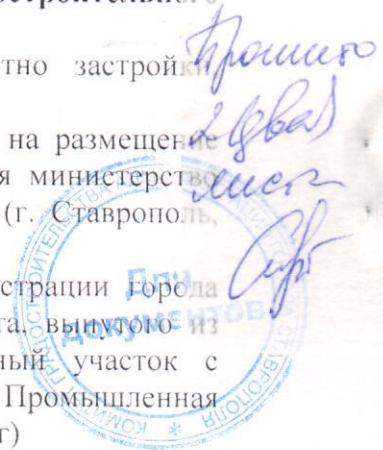 тно застройки
на размещение
я министерство
(г. Ставрополь,
страции города
та, вынутого из
ный участок с
Промышленная
г)
Прошито
2 (два)
листа
Для
документов